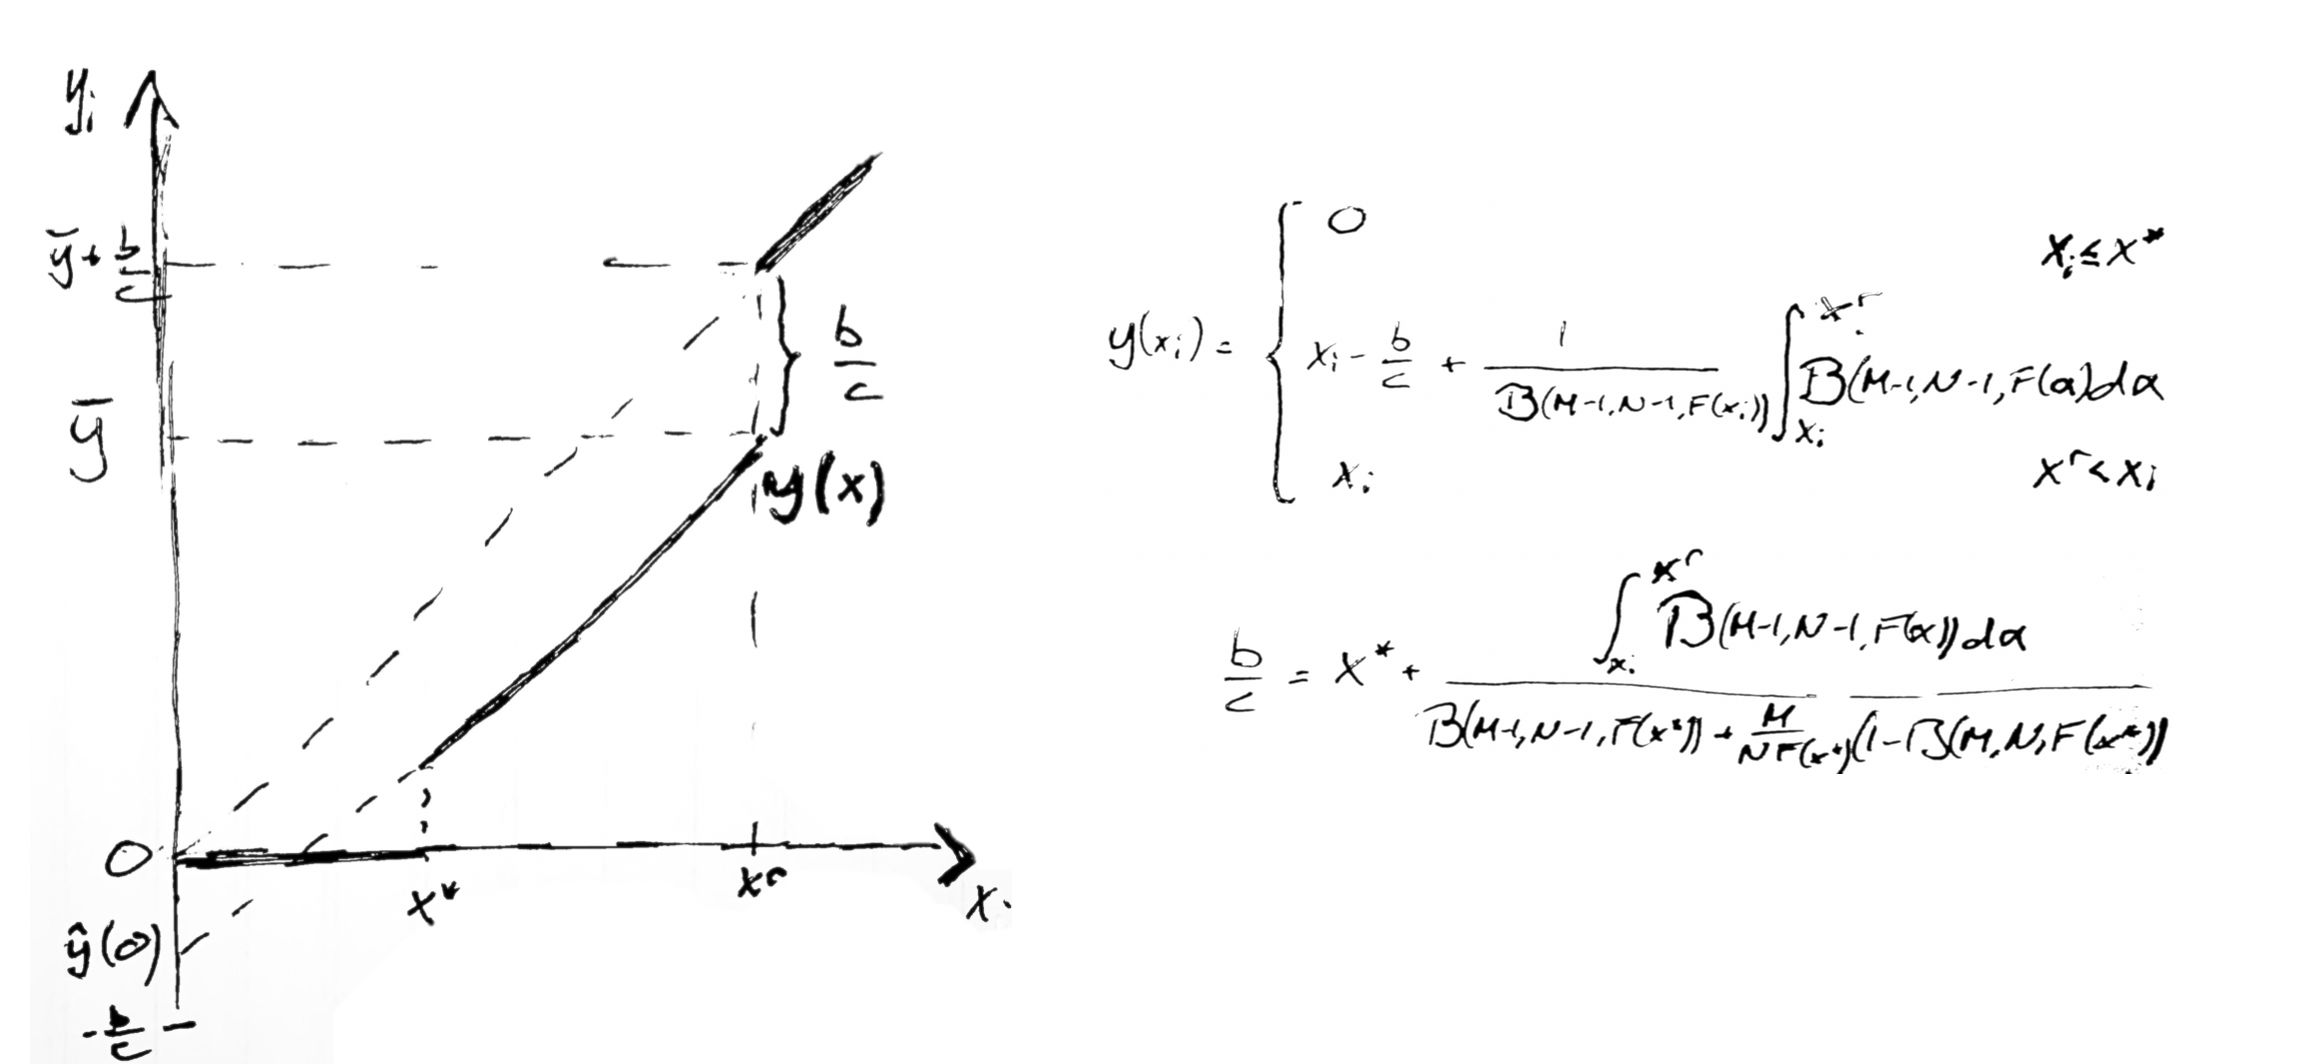 yᵢ
ȳ + b/c
b/c
ȳ
y(x)
0
x*
xʳ
xᵢ
ŷ(0)
-b/c
y(xᵢ) = { 0 xᵢ ≤ x*
xᵢ - b/c + 1/B(M-1,N-1,F(xᵢ)) ∫_{xᵢ}^{xʳ} B(M-1,N-1,F(α)dα
xᵢ xʳ < xᵢ
b/c = x* + ∫_{xᵢ}^{xʳ} B(M-1,N-1,F(α))dα / B(M-1,N-1,F(x*)) + M/NF(x*) (1-B(M,N,F(x*))